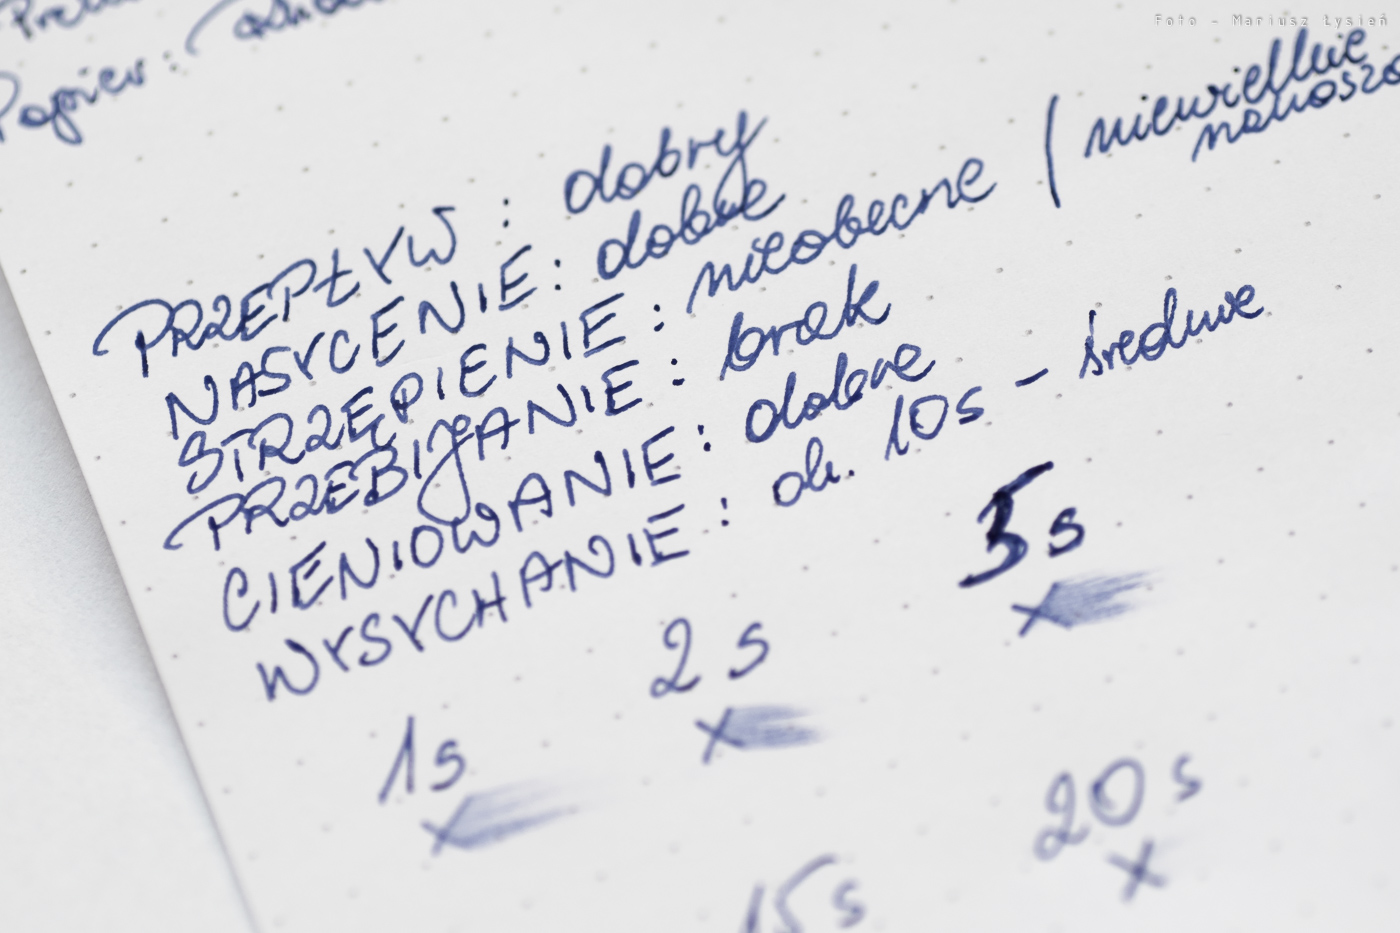 Foto - Mariusz Łysień
Papier:
PRZEPŁYW : dobry
NASYCENIE : dobre
STRZĘPIENIE : nieobecne (niewielkie
PRZEBIJANIE : brak
CIENIOWANIE : dobre
WYSYCHANIE : ok. 10s - średnie
1s
2s
5s
15s
20s